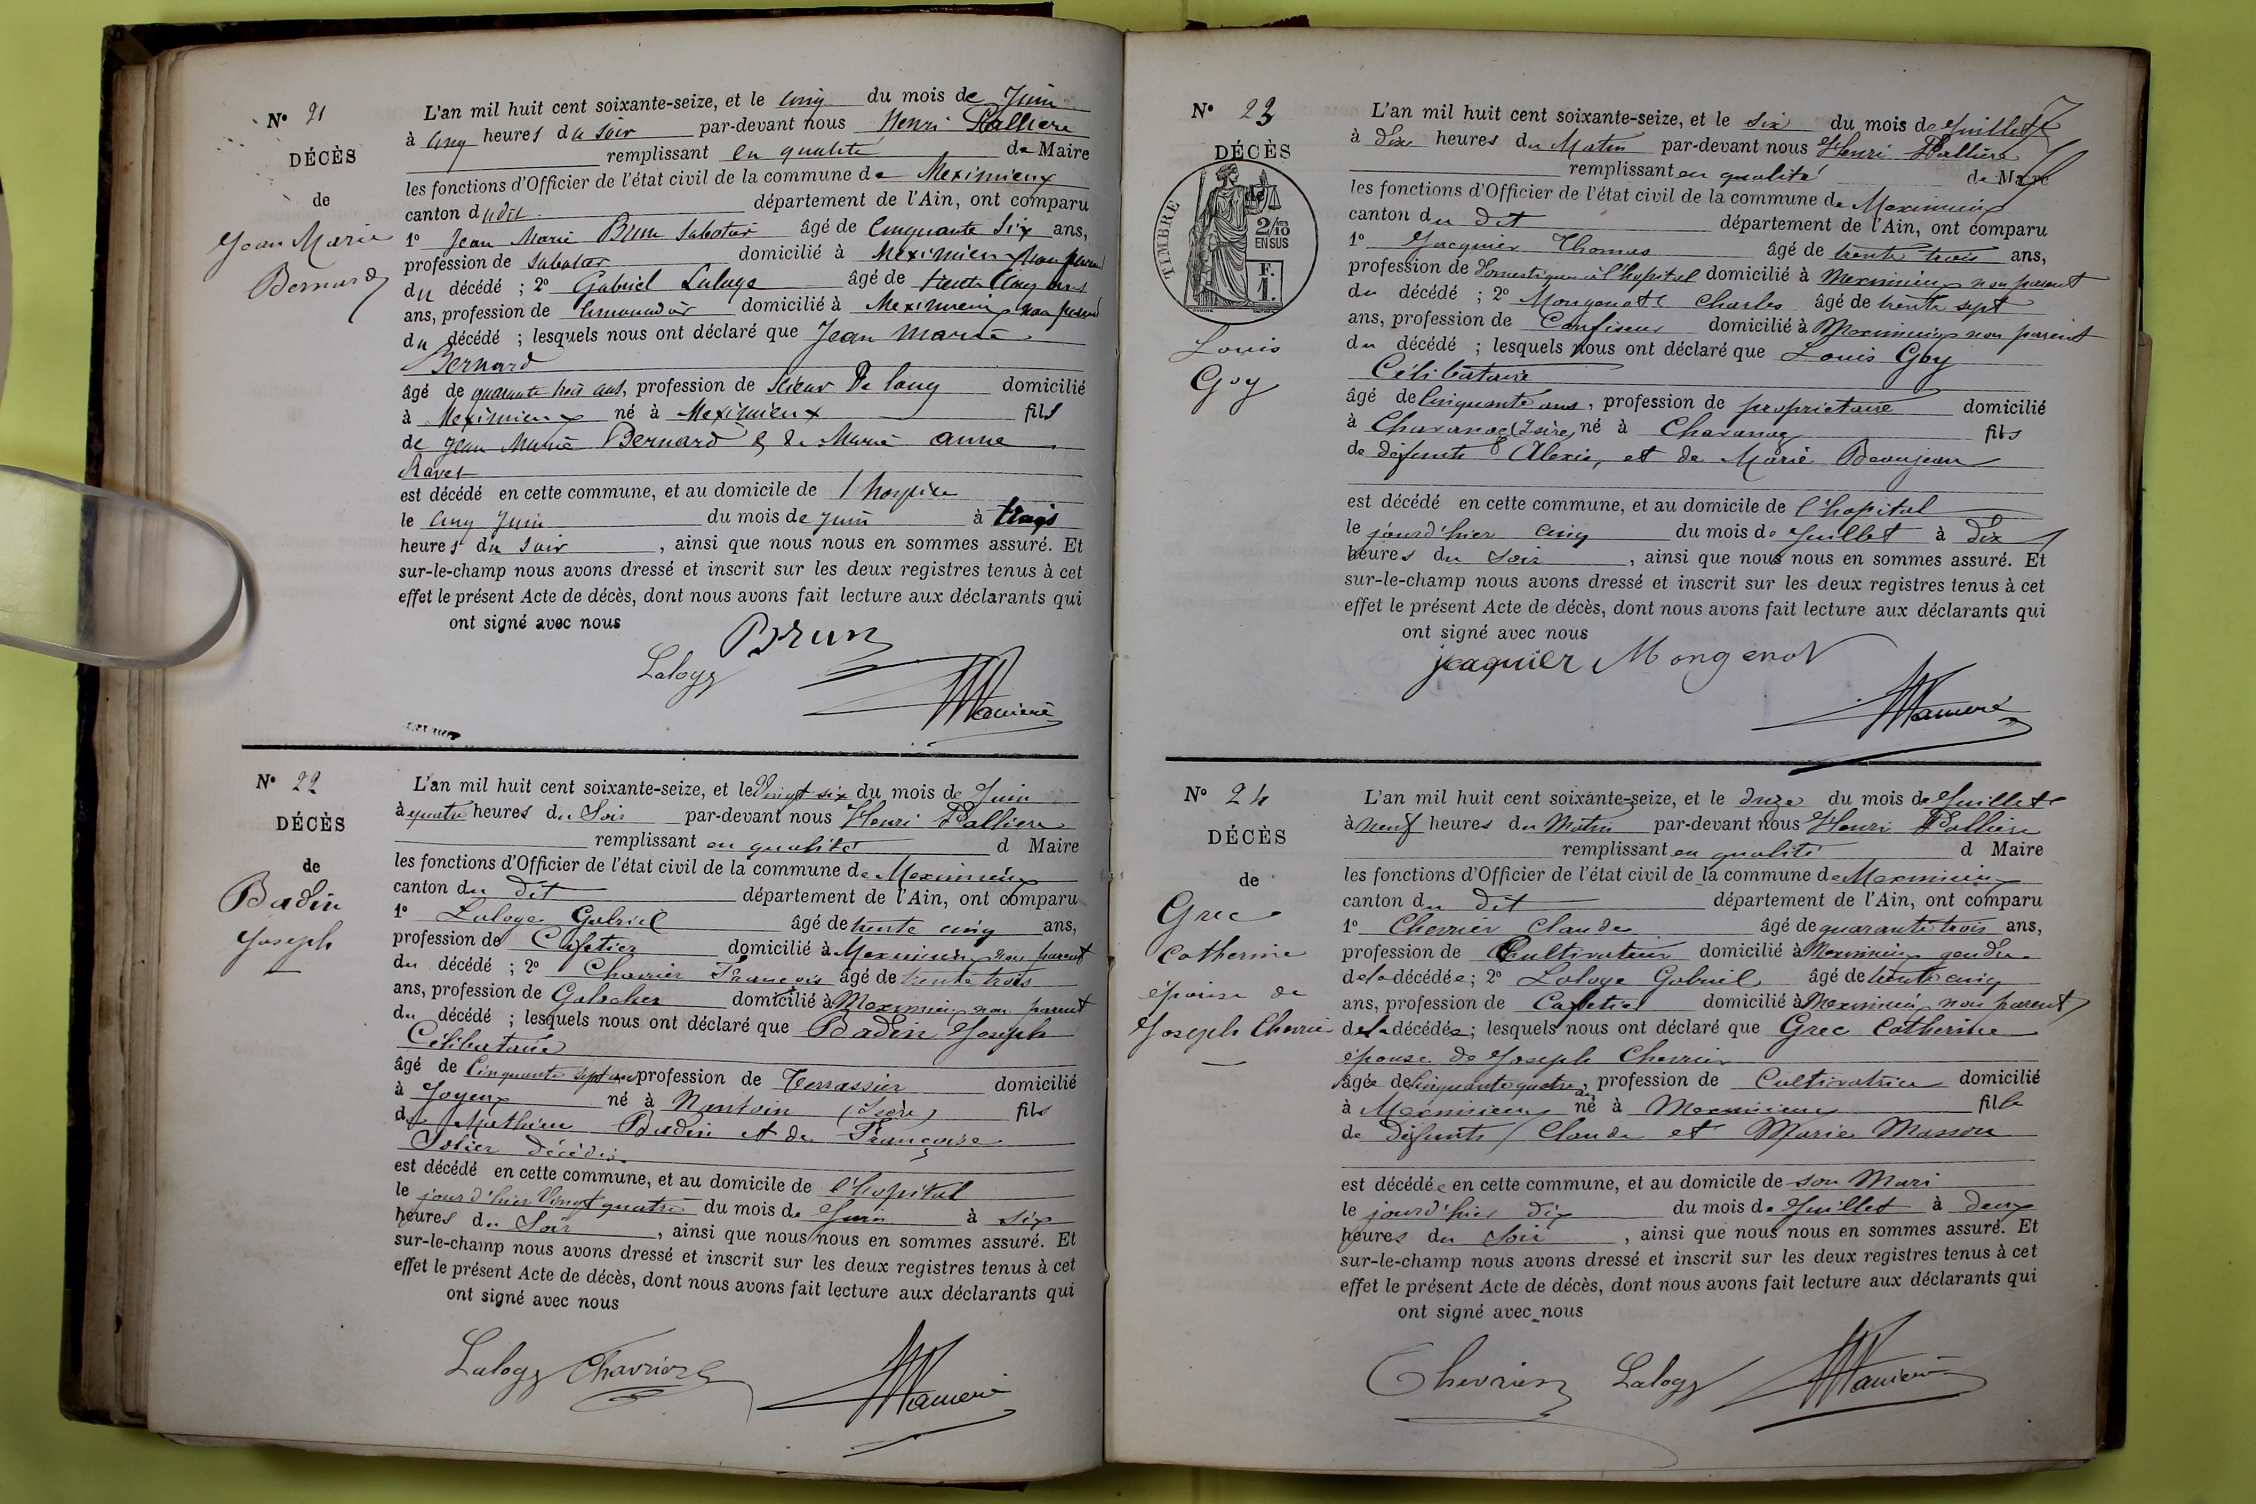 N° 21
DÉCÈS
de
Jean Marie
Bernard
L'an mil huit cent soixante-seize, et le cinq du mois de Juin
à cinq heures du soir par-devant nous Henri Pallière
remplissant en qualité de Maire
les fonctions d'Officier de l'état civil de la commune de Meximieux
canton dudit département de l'Ain, ont comparu
1° Jean Marie Brun Sabotier âgé de Cinquante Six ans,
profession de Sabotier domicilié à Meximieux non parent
du décédé ; 2° Gabriel Laloge âgé de trente Cinq ans
ans, profession de limonadier domicilié à Meximieux non parent
du décédé ; lesquels nous ont déclaré que Jean Marie
Bernard
âgé de quarante trois ans, profession de Scieur De long domicilié
à Meximieux né à Meximieux fils
de Jean Marie Bernard & de Marie Anne
Ravet
est décédé en cette commune, et au domicile de l hospice
le cinq Juin du mois de Juin à trois
heures du soir , ainsi que nous nous en sommes assuré. Et
sur-le-champ nous avons dressé et inscrit sur les deux registres tenus à cet
effet le présent Acte de décès, dont nous avons fait lecture aux déclarants qui
ont signé avec nous
Brun
Laloge
N° 22
DÉCÈS
de
Badin
Joseph
L'an mil huit cent soixante-seize, et le Vingt six du mois de Juin
à quatre heures du Soir par-devant nous Henri Pallière
remplissant en qualité d Maire
les fonctions d'Officier de l'état civil de la commune de Meximieux
canton du dit département de l'Ain, ont comparu
1° Laloge Gabriel âgé de trente cinq ans,
profession de Cafetier domicilié à Meximieux non parent
du décédé ; 2° Chavrier François âgé de trente trois
ans, profession de Galocher domicilié à Meximieux non parent
du décédé ; lesquels nous ont déclaré que Badin Joseph
Célibataire
âgé de Cinquante sept ans profession de Terrassier domicilié
à Joyeux né à Nantoin (Isère) fils
de Mathieu Badin et de Françoise
décédés
est décédé en cette commune, et au domicile de l'hopital
le jour d'hier Vingt quatre du mois de Juin à six
heures du Soir , ainsi que nous nous en sommes assuré. Et
sur-le-champ nous avons dressé et inscrit sur les deux registres tenus à cet
effet le présent Acte de décès, dont nous avons fait lecture aux déclarants qui
ont signé avec nous
Laloge Chavrier
N° 23
DÉCÈS
de
TIMBRE
2/10
EN SUS
F.
1.
Louis
Goy
L'an mil huit cent soixante-seize, et le six du mois de Juillet
à Dix heures du Matin par-devant nous Henri Pallière
remplissant en qualité de Maire
les fonctions d'Officier de l'état civil de la commune de Meximieux
canton du dit département de l'Ain, ont comparu
1° Jacquier Thomas âgé de trente trois ans,
profession de Domestique à l'hopital domicilié à Meximieux non parent
du décédé ; 2° Mongenot Charles âgé de trente sept
ans, profession de Confiseur domicilié à Meximieux non parent
du décédé ; lesquels nous ont déclaré que Louis Goy
Célibataire
âgé de Cinquante ans, profession de propriétaire domicilié
à Chavanoz (Isère) né à Chavanoz fils
de défunts Alexis, et de Marie Beaujean
est décédé en cette commune, et au domicile de l'hopital
le jour d'hier cinq du mois de Juillet à Dix
heures du Soir , ainsi que nous nous en sommes assuré. Et
sur-le-champ nous avons dressé et inscrit sur les deux registres tenus à cet
effet le présent Acte de décès, dont nous avons fait lecture aux déclarants qui
ont signé avec nous
jacquier Mongenot
N° 24
DÉCÈS
de
Grec
Catherine
épouse de
Joseph Chevrier
L'an mil huit cent soixante-seize, et le onze du mois de Juillet
à neuf heures du Matin par-devant nous Henri Pallière
remplissant en qualité d Maire
les fonctions d'Officier de l'état civil de la commune de Meximieux
canton du dit département de l'Ain, ont comparu
1° Chevrier Claude âgé de quarante trois ans,
profession de Cultivateur domicilié à Meximieux gendre
de la décédée ; 2° Laloge Gabriel âgé de trente cinq
ans, profession de Cafetier domicilié à Meximieux non parent
de la décédée ; lesquels nous ont déclaré que Grec Catherine
épouse de Joseph Chevrier
âgée de Cinquante quatre ans, profession de Cultivatrice domicilié
à Meximieux né à Meximieux fille
de Défunts Claude et Marie Masson
est décédée en cette commune, et au domicile de son Mari
le jour d'hier dix du mois de Juillet à deux
heures du Soir , ainsi que nous nous en sommes assuré. Et
sur-le-champ nous avons dressé et inscrit sur les deux registres tenus à cet
effet le présent Acte de décès, dont nous avons fait lecture aux déclarants qui
ont signé avec nous
Chevrier Laloge